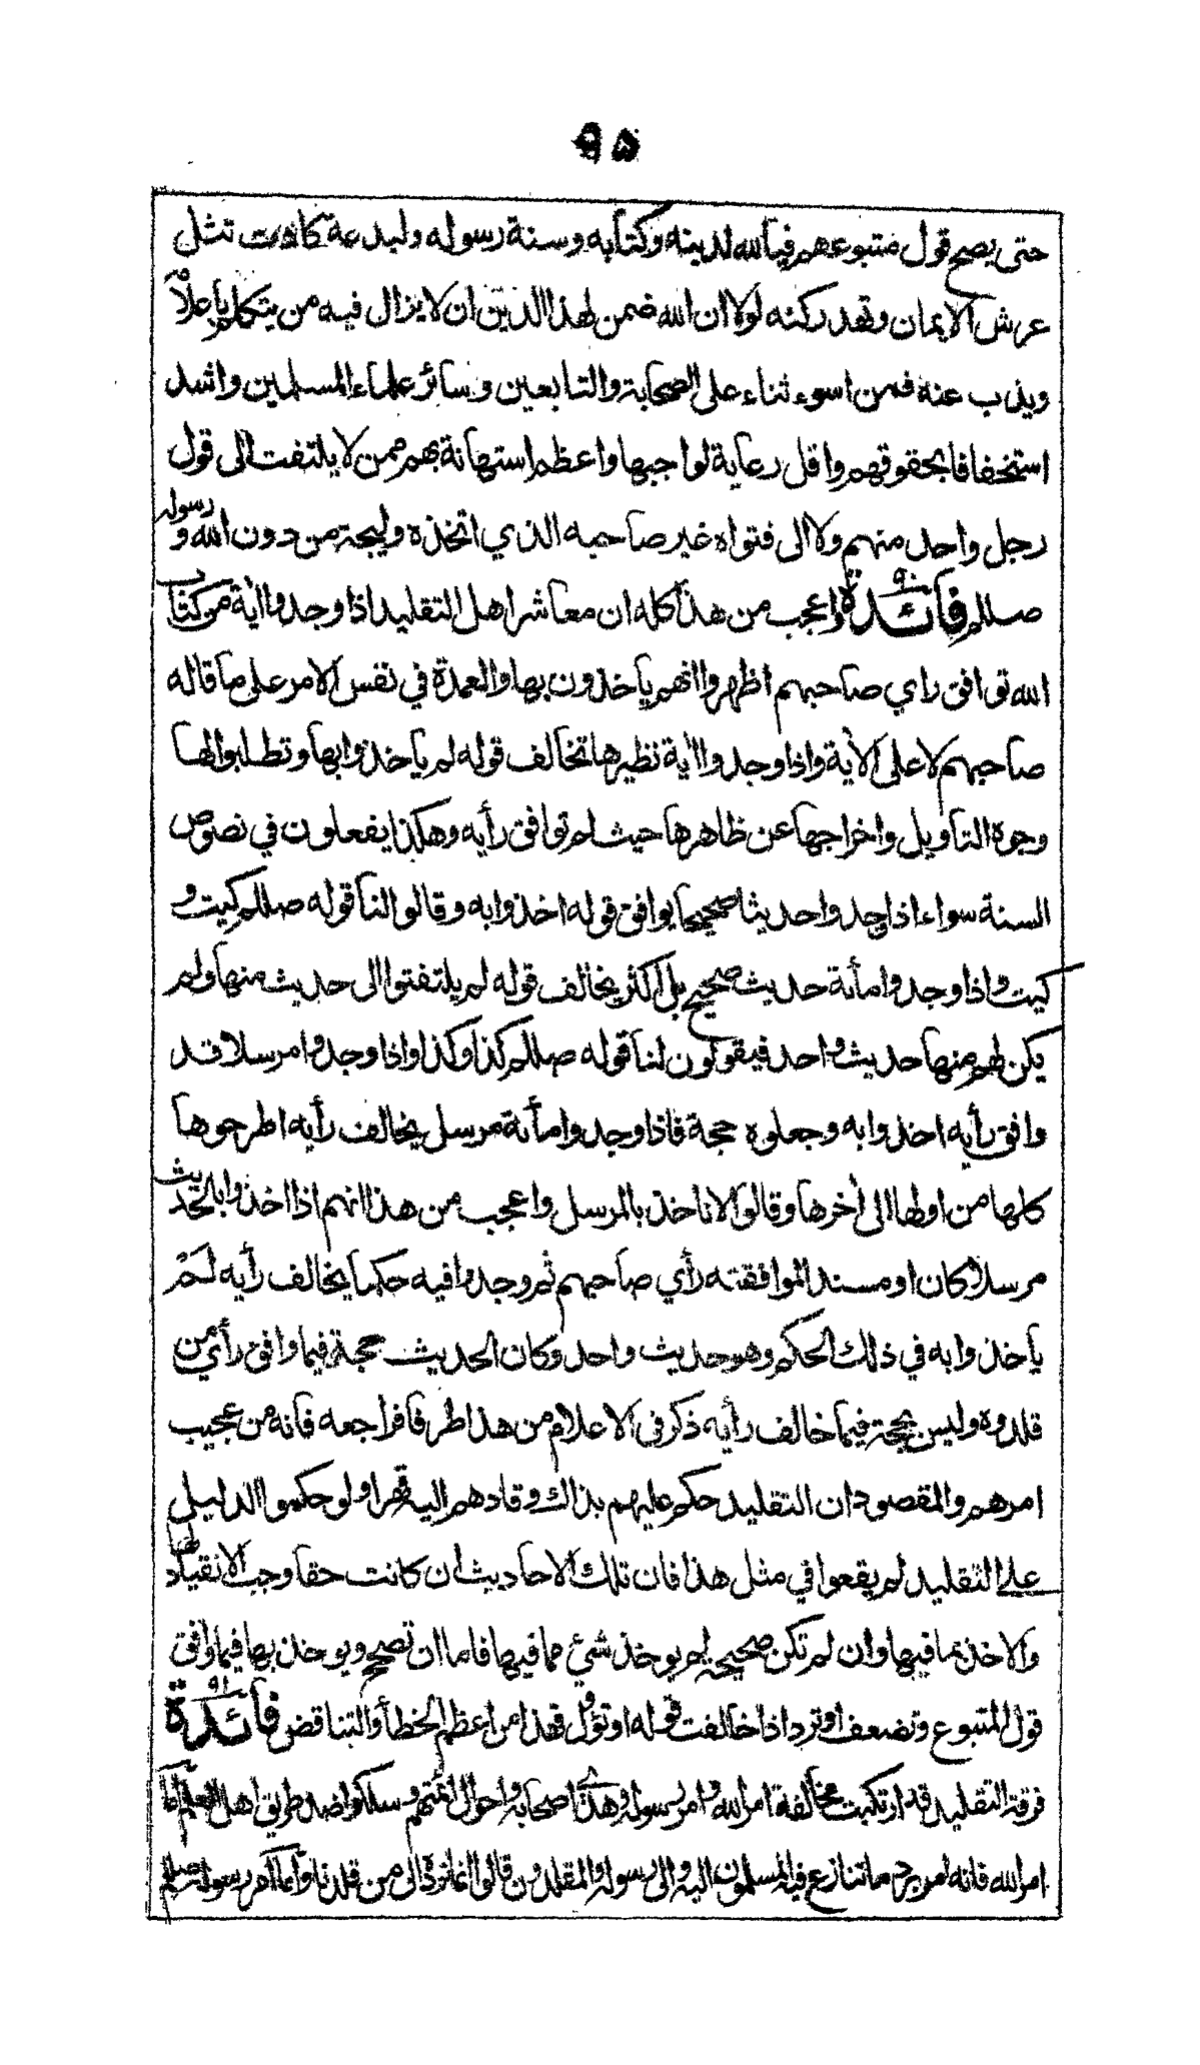 ٩٥
حتى يصح قول متبوعهم فيالله لدينه وكتابه وسنة رسوله ولبدعة كادت تثل
عرش الايمان وتهد ركنه لولا ان الله ضمن لهذا الدين ان لا يزال فيه من يتكلم باعلامه
ويذب عنه فمن اسوء ثناء على الصحابة والتابعين وسائر علماء المسلمين واشد
استخفافا بحقوقهم واقل رعاية لواجبها واعظم استهانة بهم ممن لا يلتفت الى قول
رجل واحد منهم ولا الى فتواه غير صاحبه الذي اتخذه وليجة من دون الله و رسوله
صللم فائدة ٩٠ واعجب من هذا كله ان معاشر اهل التقليد اذا وجدوا اٰية من كتاب
الله توافق راي صاحبهم اظهروا انهم ياخذون بها والعمدة في نفس الامر على ما قاله
صاحبهم لا على الاٰية واذا وجدوا اٰية نظيرها تخالف قوله لم ياخذوا بها وتطلبوا لها
وجوه التاويل واخراجها عن ظاهرها حيث لم توافق رأيه وهكذا يفعلون في نصوص
السنة سواء اذا وجدوا حديثا صحيحا يوافق قوله اخذوا به وقالوا لنا قوله صللم كيت و
كيت واذا وجدوا مأئة حديث صحيح بل اكثر يخالف قوله لم يلتفتوا الى حديث منها ولم
يكن لهم منها حديث واحد فيقولون لنا قوله صللم كذا وكذا واذا وجدوا مرسلا قد
وافق رأيه اخذوا به وجعلوه حجة فاذا وجدوا مأئة مرسل يخالف رأيه اطرحوها
كلها من اولها الى اٰخرها وقالوا لا ناخذ بالمرسل واعجب من هذا انهم اذا اخذوا بالحديث
مرسلا كان او مسندا لموافقته رأي صاحبهم ثم وجدوا فيه حكما يخالف رأيه لم
ياخذوا به في ذلك الحكم وهو حديث واحد وكان الحديث حجة فيما وافق رأي من
قلدوه وليس بحجة فيما خالف رأيه ذكر في الاعلام من هذا طرفا فراجعه فانه من عجيب
امرهم والمقصود ان التقليد حكم عليهم بذاك وقادهم اليه قهرا ولو حكموا الدليل
على التقليد لم يقعوا في مثل هذا فان تلك الاحاديث ان كانت حقا وجب الانقياد لها
والاخذ بما فيها وان لم تكن صحيحة لم يوخذ شئ مما فيها فاما ان تصح ويوخذ بها فيما وافق
قول المتبوع وتضعف او ترد اذا خالفت قوله او تؤل فهذا من اعظم الخطأ والتناقض فائدة ٩١
فرقة التقليد قد ارتكبت مخالفة امر الله وامر رسوله وهدي اصحابه واحوال ائمتهم وسلكوا ضد طريق اهل العلم اما
امر الله فانه امر برد ما تنازع فيه المسلمون اليه والى رسوله والمقلدون قالوا انما نرده الى من قلدناه واما امر رسوله صللم